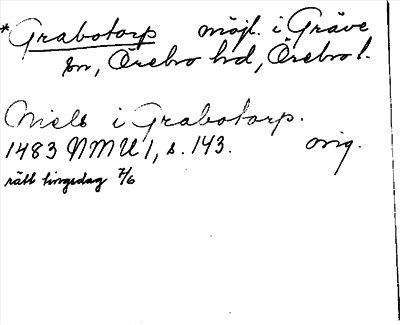 *Grabotorp möjl. i Gräve
sn, Örebro hd, Örebro l.
Niels i Grabotorp.
1483 NMU 1, s. 143. orig.
rätt tingsdag 7/6